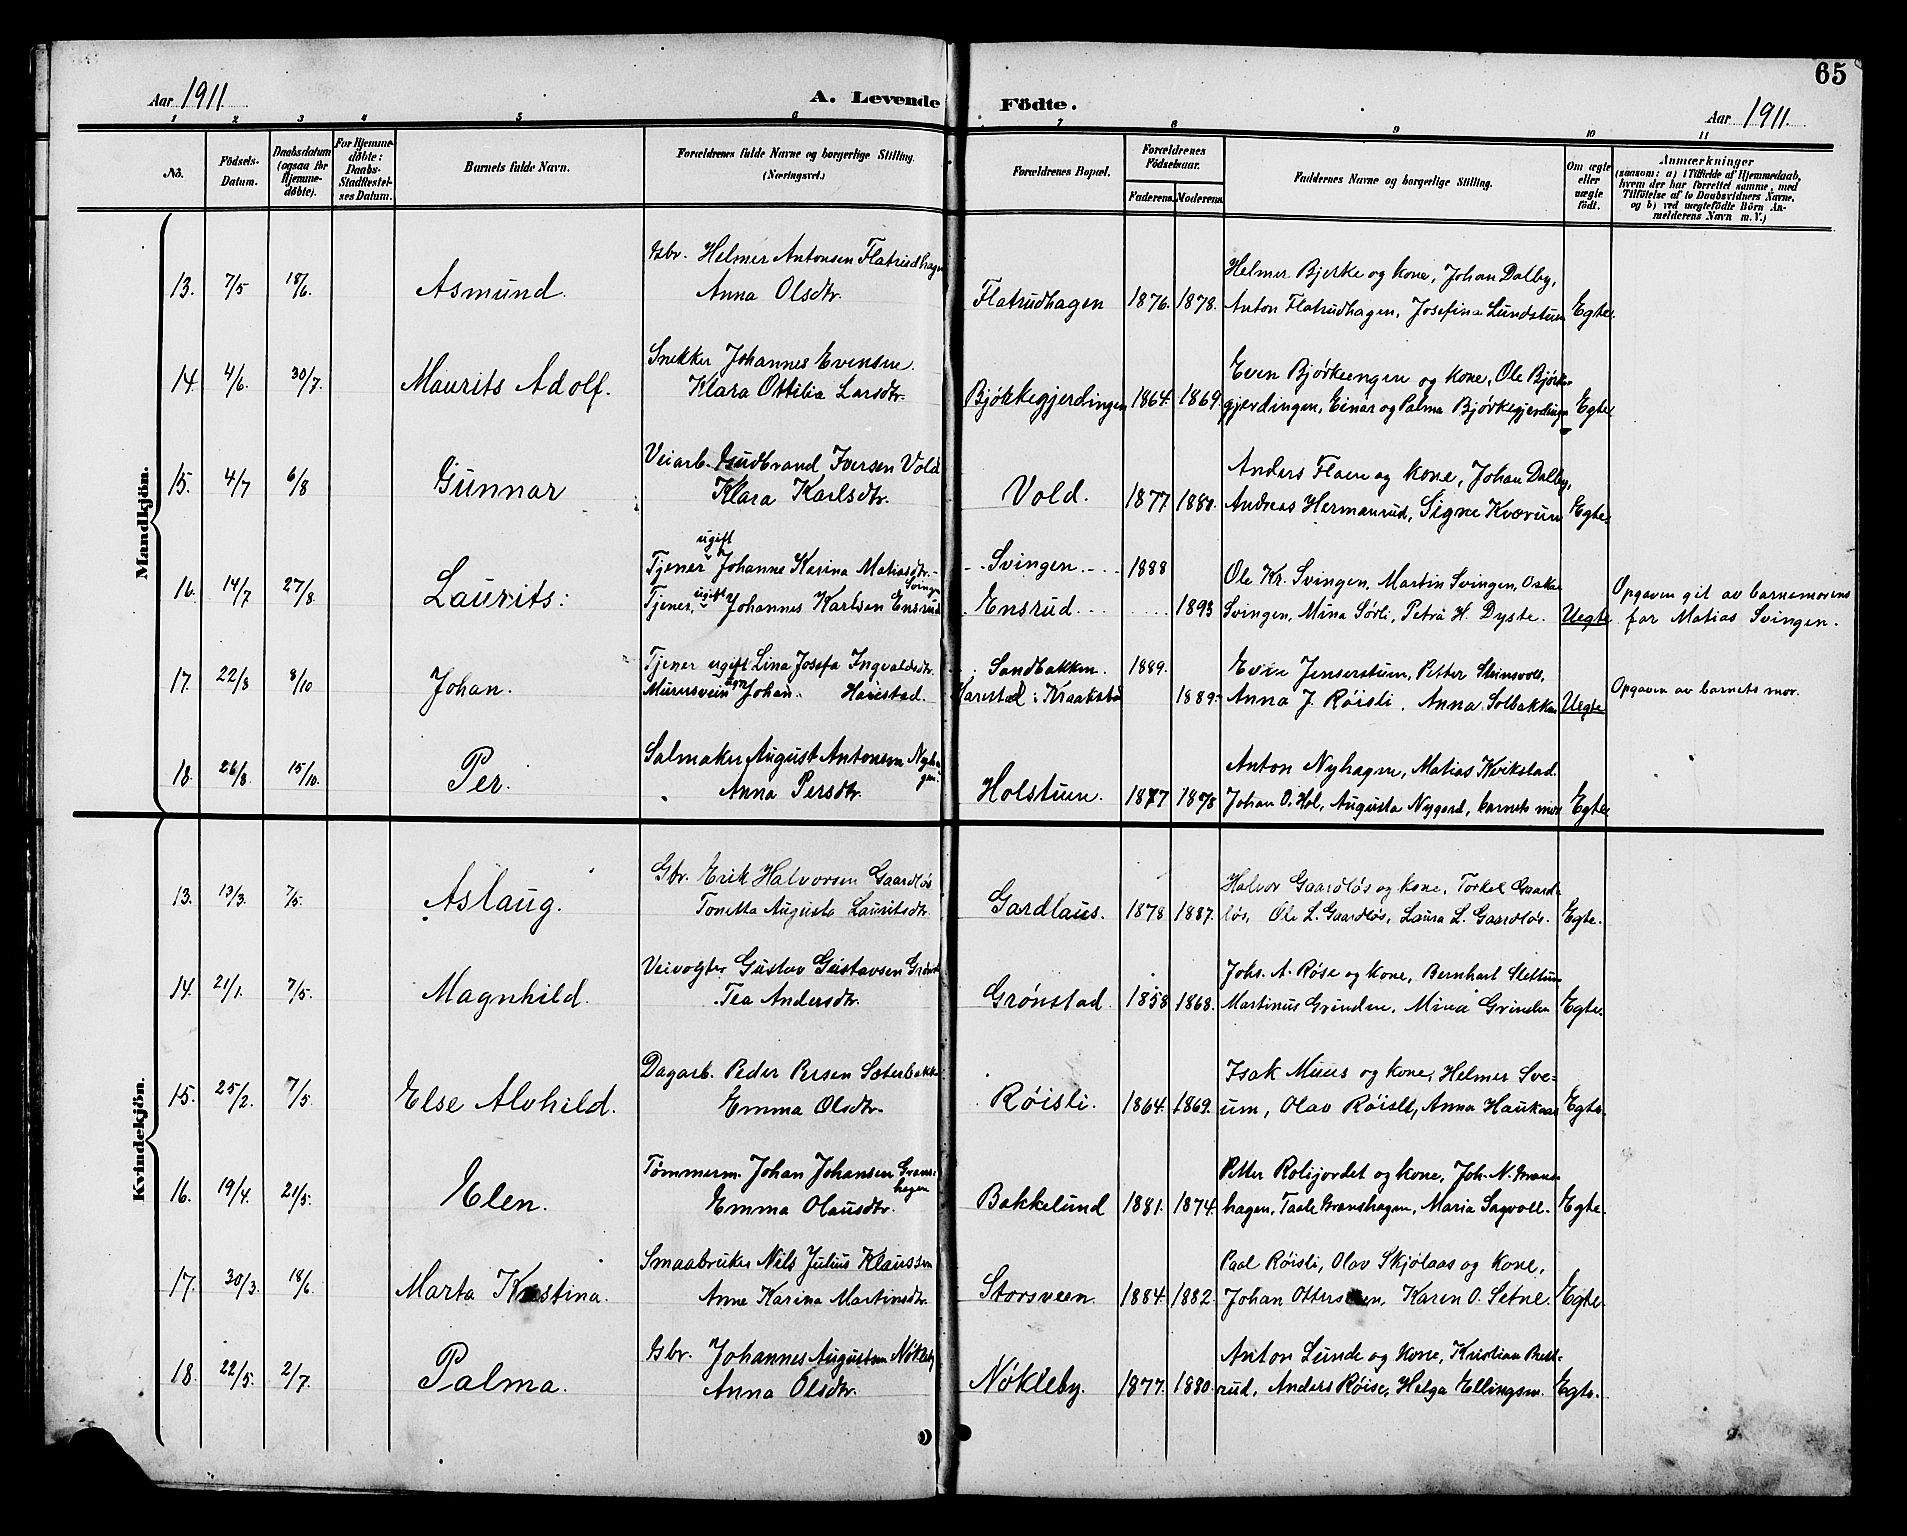 65
Aar 1911
A. Levende Födte.
Aar 1911.
1 2 3 4 5 6 7 8 9 10 11
No.
Födsels-Datum.
Daabsdatum (ogsaa for Hjemmedöbte).
For Hjemmedöbte: Daabs-Stadfæstelses Datum.
Barnets fulde Navn.
Forældrenes fulde Navne og borgerlige Stilling. (Næringsvei.)
Forældrenes Bopæl.
Forældrenes Födselsaar.
Faderens. Moderens.
Faddernes Navne og borgerlige Stilling.
Om ægte eller uægte födt.
Anmærkninger
(saasom: a) i Tilfælde af Hjemmedaab, hvem der har forrettet samme, med Tilföielse af to Daabsvidners Navne. og b) ved uægtefödte Börn Anmelderens Navn m. V.)
Mandkjön.
Gbr. Helmer Antonsen Flatrudhagen
Helmer Bjerke og kone, Johan Dalby,
13. 7/5 18/6. Asmund. Anna Olsdtr. Flatrudhagen 1876. 1878. Anton Flatrudhagen, Josefina Lundstuen Egte.
Snekker Johannes Evensen
Even Bjørkeengen og kone, Ole Bjørke-
14. 4/6. 30/7. Maurits Adolf. Klara Ottilia Larsdtr. Bjørkegjerdingen 1864. 1869. gjerdingen, Einar og Palma Bjørkegjerdingen Egte.
Veiarb. Gudbrand Iversen Vold
Anders Flaen og kone, Johan Dalby,
15. 4/7 6/8 Gunnar Klara Karlsdtr. Vold. 1877. 1880. Andreas Hermanrud, Signe Kværum Egte.
ugift
Tjener Johanne Karina Matiasdtr. Svingen Svingen 1888 Ole Kr. Svingen, Martin Svingen, Oskar
16. 14/7 27/8 Laurits: Tjener ugift Johannes Karlsen Ensrud Ensrud 1893 Svingen, Mina Sørli, Petra H. Dyste. Uegte
Opgaven git av barnemorens far Matias Svingen.
Tjener ugift Lina Josefa Ingvaldsdtr. Sandbakken 1889. Even Jenserstuen, Petter Steinsvoll,
17. 22/8 8/10 Johan. Murersvein Johan Harestad. Harestad i Kraakstad 1889. Anna J. Røisli. Anna Solbakken Uegte Opgaven av barnets mor.
Salmaker August Antonsen Nyhagen
Anton Nyhagen, Matias Kvikstad.
18. 26/8. 15/10. Per. Anna Persdtr. Holstuen. 1877 1878 Johan O. Hol, Augusta Nygard, barnets mor Egte
Kvindekjön.
Gbr. Erik Halvorsen Gaardløs
Halvor Gaardløs og kone, Torkel Gaard-
13. 13/3. 7/5. Aslaug. Tonetta Augusta Lauritsdtr. Gardlaus. 1878 1887. løs, Ole L. Gaardløs, Laura L. Gaardløs. Egte.
Veivogter Gustav Gustavsen
Johs. A. Røse og kone, Bernhart Slettum
14. 21/1. 7/5. Magnhild. Tea Andersdtr. Grønstad. 1858 1868. Martinus Grinden, Mina Grinden Egte.
Dagarb. Peder Persen Sæterbakken
Isak Muus og kone, Helmer Sve-
15. 25/2. 7/5. Else Alvhild. Emma Olsdtr. Røisli. 1864. 1869. um, Olav Røisli, Anna Haukaas Egte.
Tømmerm. Johan Johansen Granshagen
Petter Rolijordet og kone, Joh. N. Grans-
16. 19/4. 21/5. Elen. Emma Olausdtr. Bakkelund 1881. 1874. hagen, Taale Granshagen, Maria Sagvoll. Egte.
Smaabruker Nils Julius Klaussen
Paal Røisli, Olav Skjølaas og kone,
17. 30/3. 18/6. Marta Kristina. Anne Karina Martinsdtr. Storsveen. 1884. 1882. Johan Ottersen, Karen O. Setne. Egte.
Gbr. Johannes Augustsen Nøkleby
Anton Lunde og kone, Kristian
18. 22/5. 2/7. Palma. Anna Olsdtr. Nøkleby. 1877. 1880. rud, Anders Røise, Helga Ellingsen. Egte.